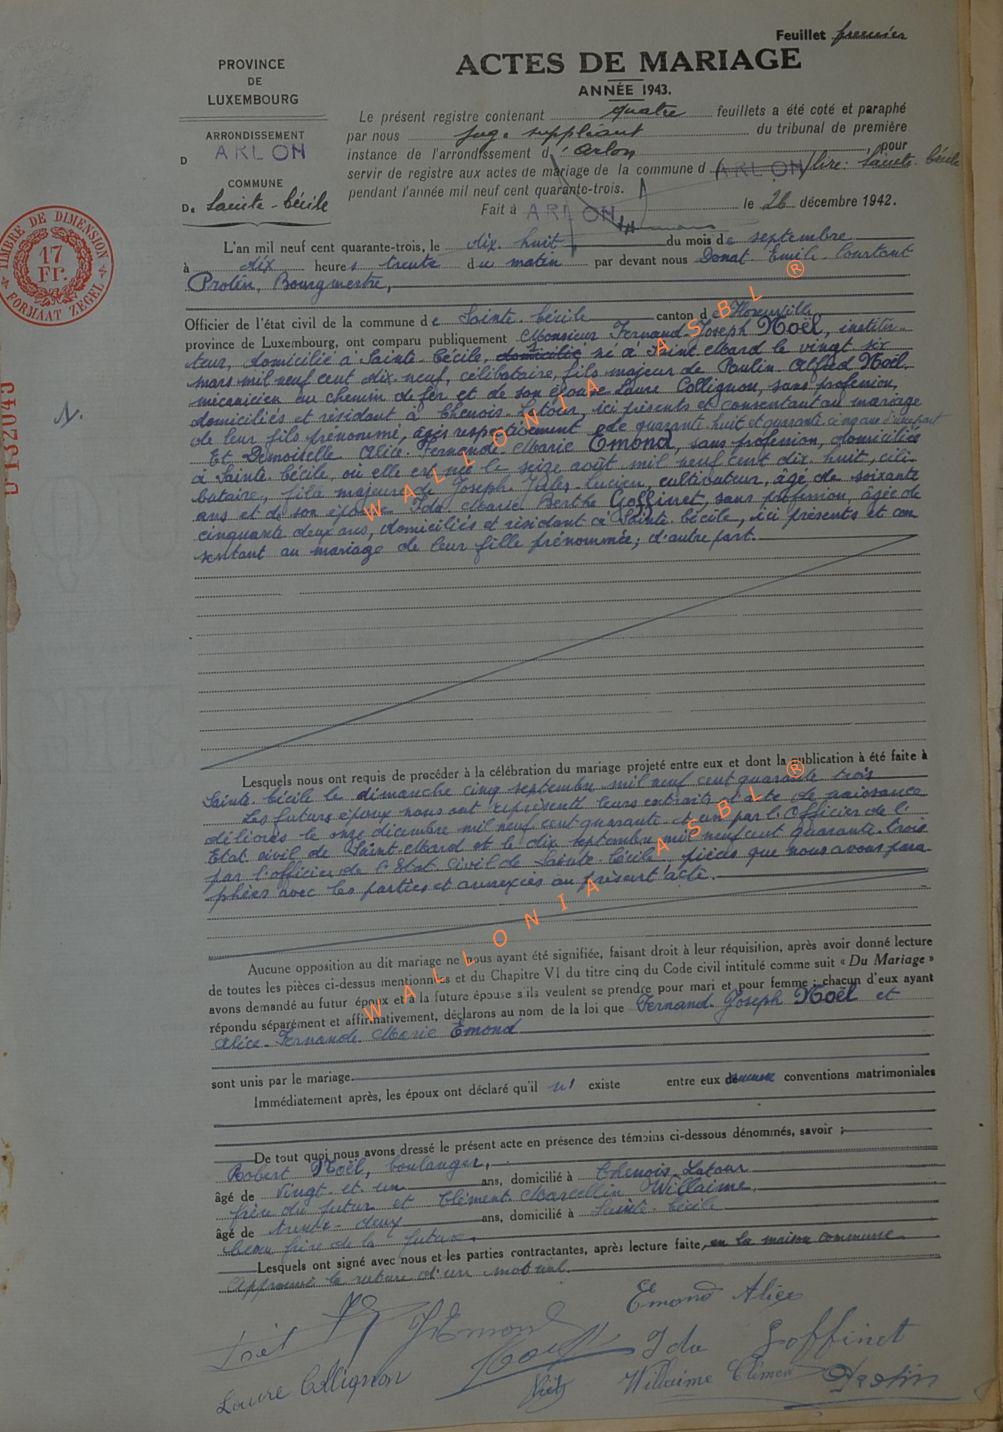 Feuillet premier
PROVINCE
DE
LUXEMBOURG
ARRONDISSEMENT
D ARLON
COMMUNE
De Sainte-Cécile
ACTES DE MARIAGE
ANNÉE 1943.
Le présent registre contenant quatre feuillets a été coté et paraphé
par nous juge suppléant du tribunal de première
instance de l'arrondissement d'Arlon, pour
servir de registre aux actes de mariage de la commune d (ARLON) lire: Sainte-Cécile
pendant l'année mil neuf cent quarante-trois.
Fait à ARLON le 26 décembre 1942.
TIMBRE DE DIMENSION
17
FR.
FORMAAT ZEGEL
N.
L'an mil neuf cent quarante-trois, le dix-huit du mois de septembre
à dix heures trente du matin par devant nous Donat Emile Constant
Protin, Bourgmestre,
Officier de l'état civil de la commune de Sainte-Cécile canton de Florenville
province de Luxembourg, ont comparu publiquement Monsieur Fernand-Joseph Noël, institu-
teur, domicilié à Sainte-Cécile, domicilié né à Saint-Mard le vingt six
mars mil neuf cent dix-neuf, célibataire, fils majeur de Paulin-Alfred Noël
mécanicien au chemin de fer et de son épouse Laure Collignon, sans profession,
domiciliés et résidant à Chenois-Latour, ici présents et consentant au mariage
de leur fils prénommé, âgés respectivement de quarante-huit et quarante cinq ans d'une part
Et Demoiselle Alice-Fernande-Marie Emond, sans profession, domiciliée
à Sainte-Cécile, où elle est née le seize août mil neuf cent dix-huit, céli-
bataire, fille majeure de Joseph-Jules-Lucien, cultivateur, âgé de soixante
ans et de son épouse Ida-Marie-Berthe Goffinet, sans profession, âgée de
cinquante deux ans, domiciliés et résidant à Sainte-Cécile, ici présents et con
sentant au mariage de leur fille prénommée; d'autre part.
Lesquels nous ont requis de procéder à la célébration du mariage projeté entre eux et dont la publication a été faite à
Sainte-Cécile le dimanche cinq septembre mil neuf cent quarante trois
Les futurs époux nous ont représenté leurs extraits d'acte de naissance
délivrés le onze décembre mil neuf cent quarante-et-un par l'Officier de l'
Etat civil de Saint-Mard et le dix septembre mil neuf cent quarante-trois
par l'officier de l'Etat-Civil de Sainte-Cécile, pièces que nous avons para
phées avec les parties et annexées au présent acte.
Aucune opposition au dit mariage ne nous ayant été signifiée, faisant droit à leur réquisition, après avoir donné lecture
de toutes les pièces ci-dessus mentionnées et du Chapitre VI du titre cinq du Code civil intitulé comme suit « Du Mariage »
avons demandé au futur époux et à la future épouse s'ils veulent se prendre pour mari et pour femme ; chacun d'eux ayant
répondu séparément et affirmativement, déclarons au nom de la loi que Fernand-Joseph Noël et
Alice-Fernande-Marie Emond
sont unis par le mariage.
Immédiatement après, les époux ont déclaré qu'il n' existe entre eux conventions matrimoniales
De tout quoi nous avons dressé le présent acte en présence des témoins ci-dessous dénommés, savoir :
Robert Noël, boulanger,
âgé de vingt-et-un ans, domicilié à Chenois-Latour
frère du futur et Clément-Marcellin Willaime,
âgé de trente-deux ans, domicilié à Sainte-Cécile
beau frère de la future.
Lesquels ont signé avec nous et les parties contractantes, après lecture faite, en la maison commune
Approuvé la rature d'un mot nul.
Emond Alice
Noël JEmond
Ida Goffinet
Laure Collignon
Willaime Clément Protin
WALLONIA ASBL ®
WALLONIA ASBL ®